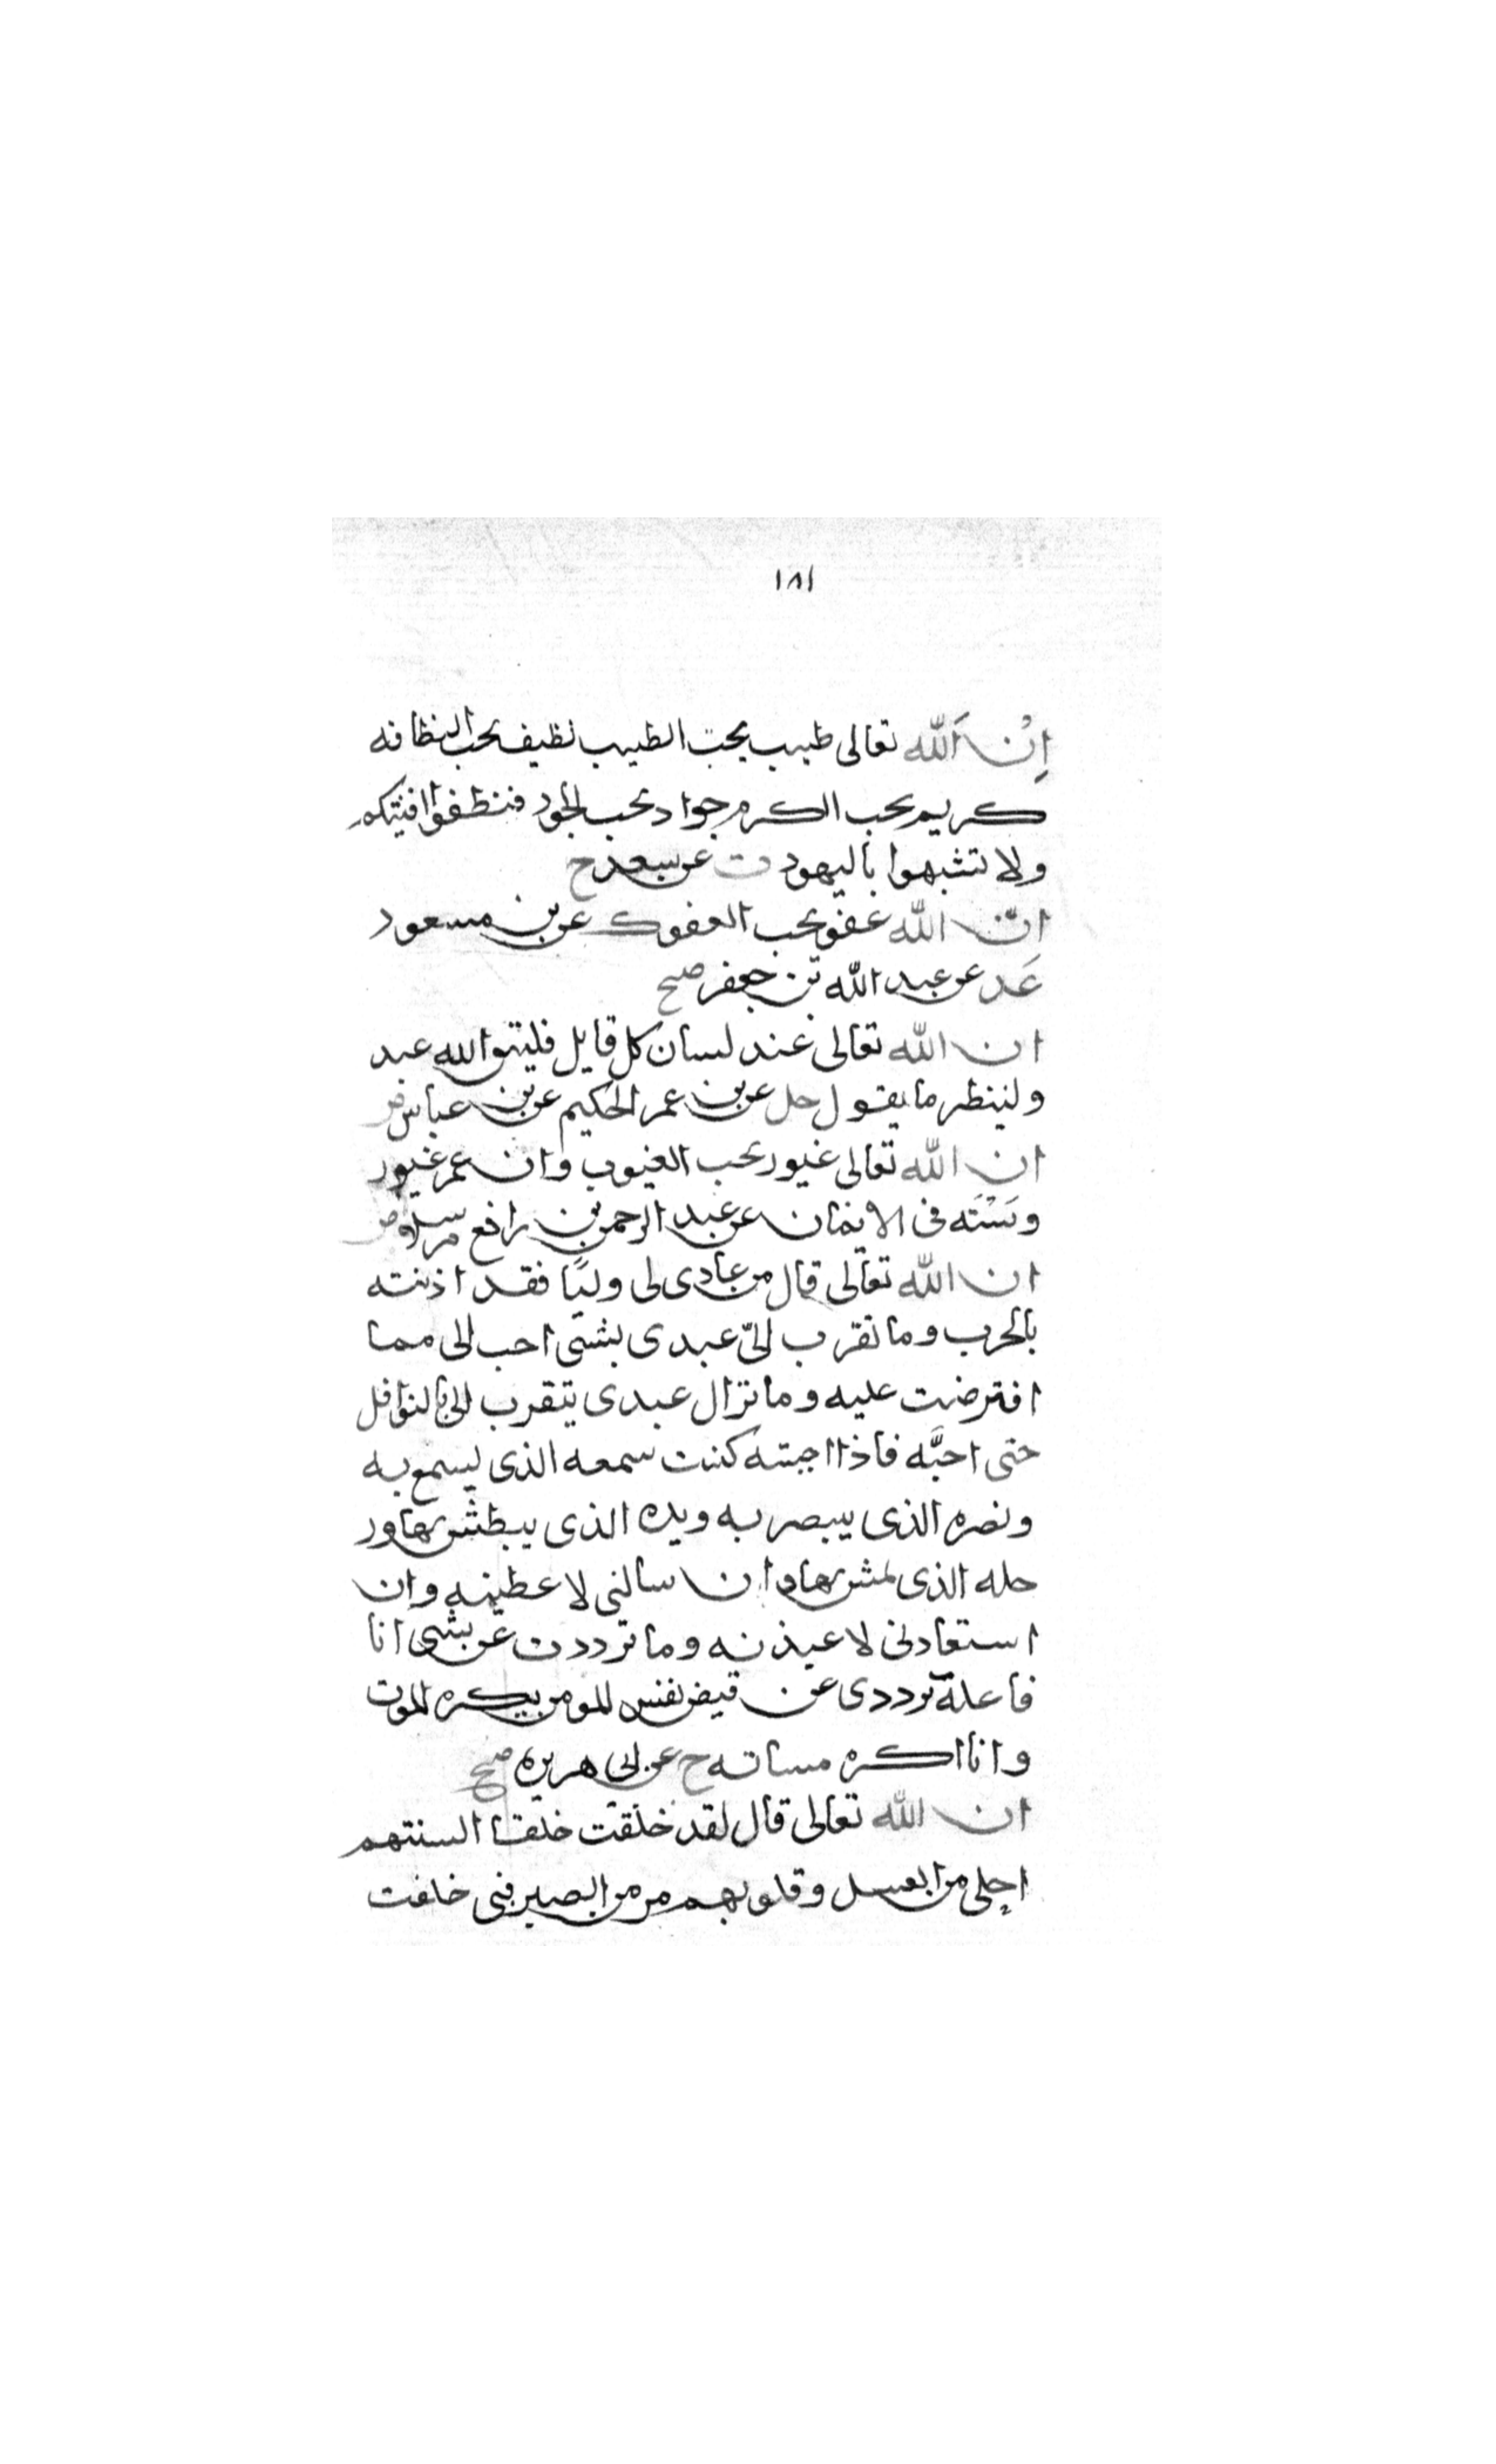 ١٨١
اِنْ اَلله تعالى طيب يحب الطيب نظيف يحب النظافه
كريم يحب الكرم جواد يحب الجود فنظفوا افنيتكم
ولا تشبهوا باليهود ت عن سعد ح
انّ الله عفو يحب العفو ك عن بن مسعود
عَد عن عبد الله بن جعفر صح
ان الله تعالى عند لسان كل قايل فليتق الله عبد
ولينظر ما يقول حل عن بن عمر الحكيم عن بن عباس
ان الله تعالى غيور يحب الغيور وان عمر غيور
رَسْتَه فى الايمان عن عبد الرحمن بن رافع مرسلا
ان الله تعالى قال من عادى لى وليًا فقد اذنته
بالحرب وما تقرب الىّ عبدى بشئ احب الى مما
افترضت عليه وما تزال عبدى يتقرب الى بالنوافل
حتى احبَّه فاذا احببته كنت سمعه الذى يسمع به
وبصره الذى يبصر به ويده الذى يبطش بها ور
جله الذى يمشى بها وان سالنى لاعطينه وان
استعاذنى لاعيذنه وما ترددت عن بشى انا
فاعله ترددى عن قبض نفس المومن يكره الموت
وانا اكره مساته ح عن ابى هريره صح
ان الله تعالى قال لقد خلقت خلقا السنتهم
احلى من العسل وقلوبهم مر من الصبر فبى حلفت